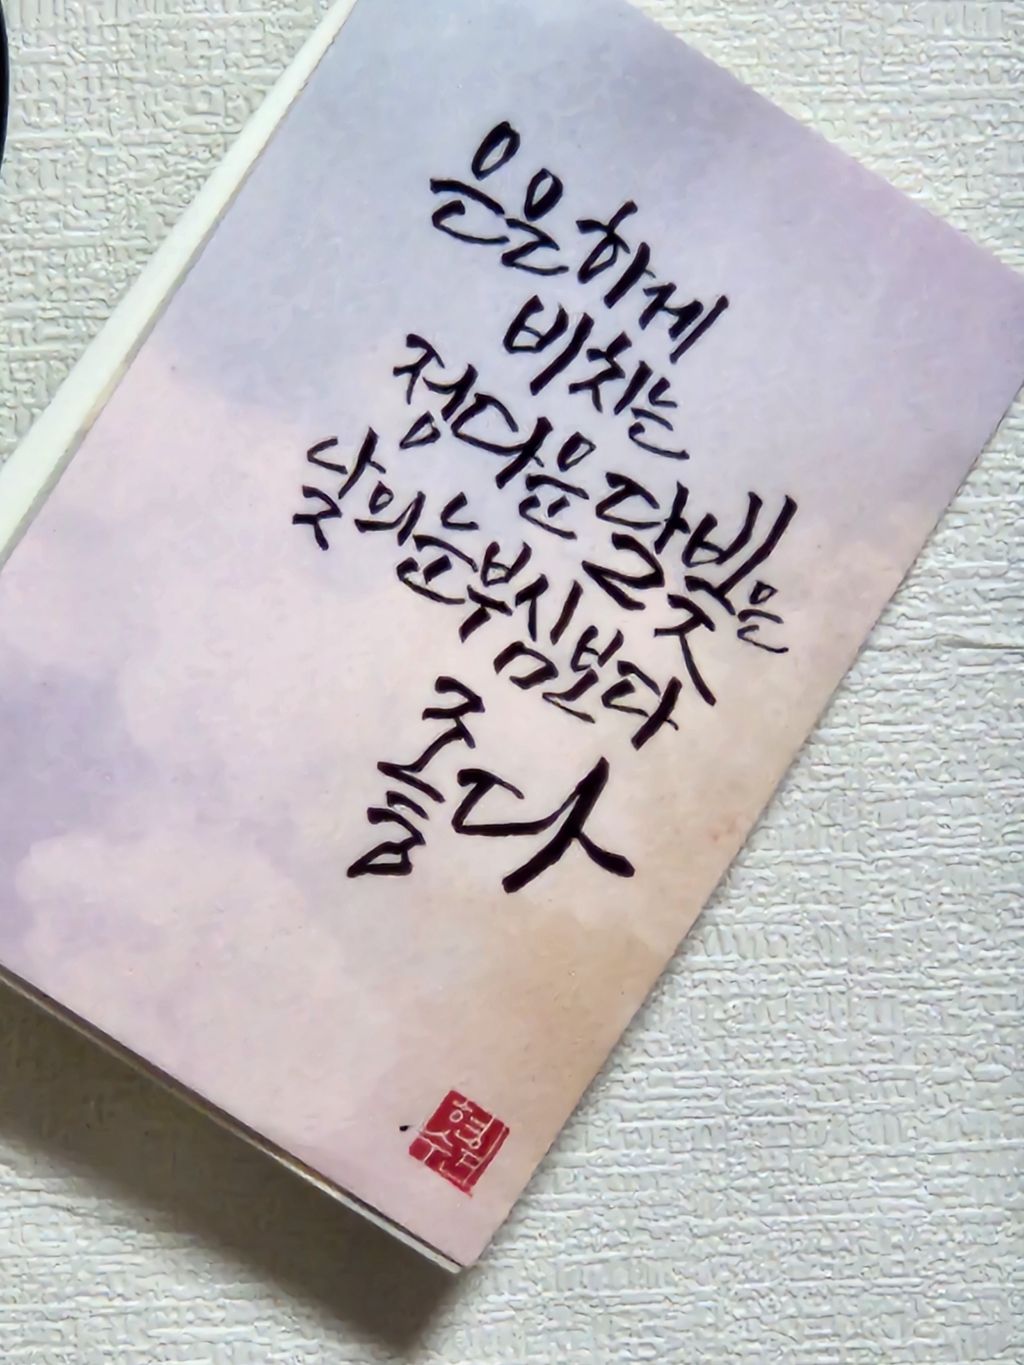 은은하게
비치는
정다운 달빛은
낮의 눈부심보다
좋다